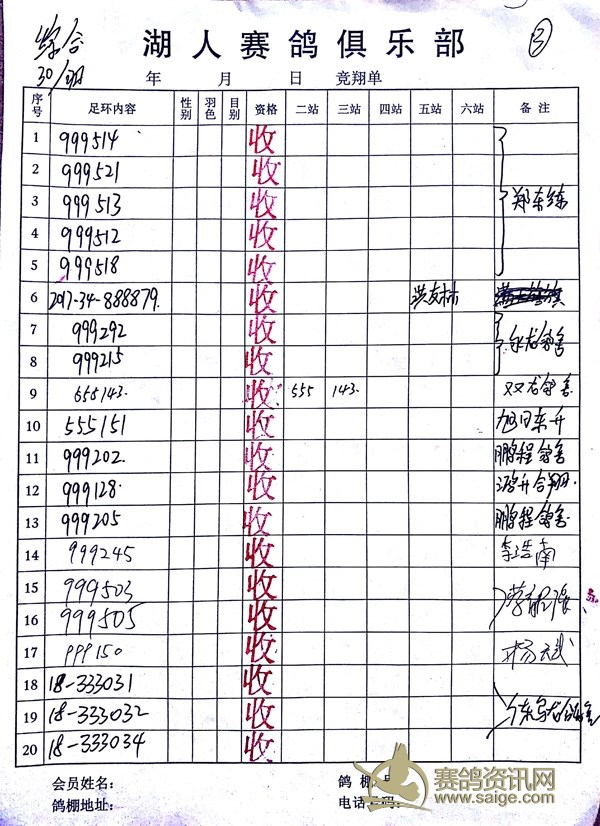 综合 湖人赛鸽俱乐部 ③
30/羽 年 月 日 竞翔单
序号 足环内容 性别 羽色 目别 资格 二站 三站 四站 五站 六站 备注
1 999514 收
2 999521 收
3 999513 收 郑东练
4 999512 收
5 999518 收
6 2017-34-888879 收 洪友林
7 999292 收
8 999215 收 龙鸽舍
9 555143 收 555 143 双龙鸽舍
10 555151 收 旭日东升
11 999202 收 鹏程鸽舍
12 999128 收 鸿升合翔
13 999205 收 鹏程鸽舍
14 999245 收 李浩南
15 999503 收
16 999505 收
17 999150 收 杨斌
18 18-333031 收
19 18-333032 收
20 18-333034 收
会员姓名: 鸽棚
鸽棚地址: 电话号码:
赛鸽资讯网
www.saige.com